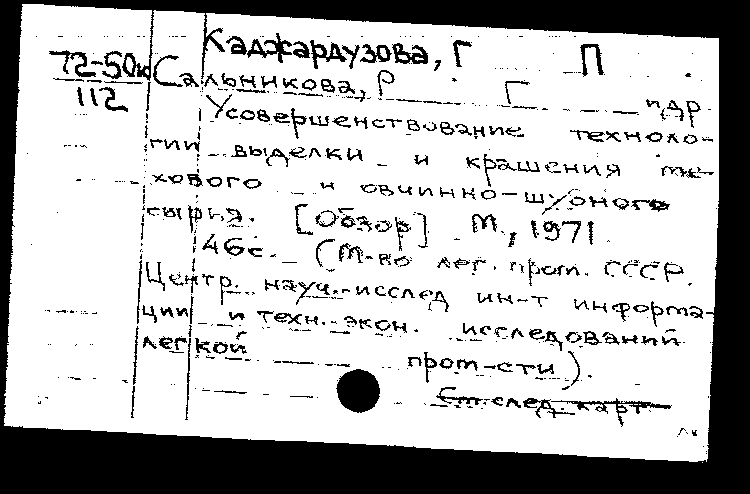 Каджардузова, Г П
72-50к Сальникова, Р Г и др
112
Усовершенствование техноло-
гии выделки и крашения ме-
хового и овчинно-шубного
сырья. [Обзор] М., 1971.
46с. (М-во лег. пром. СССР.
Центр. науч.-исслед ин-т информа-
ции и техн.-экон. исследований
легкой пром-сти).
См. след. карт